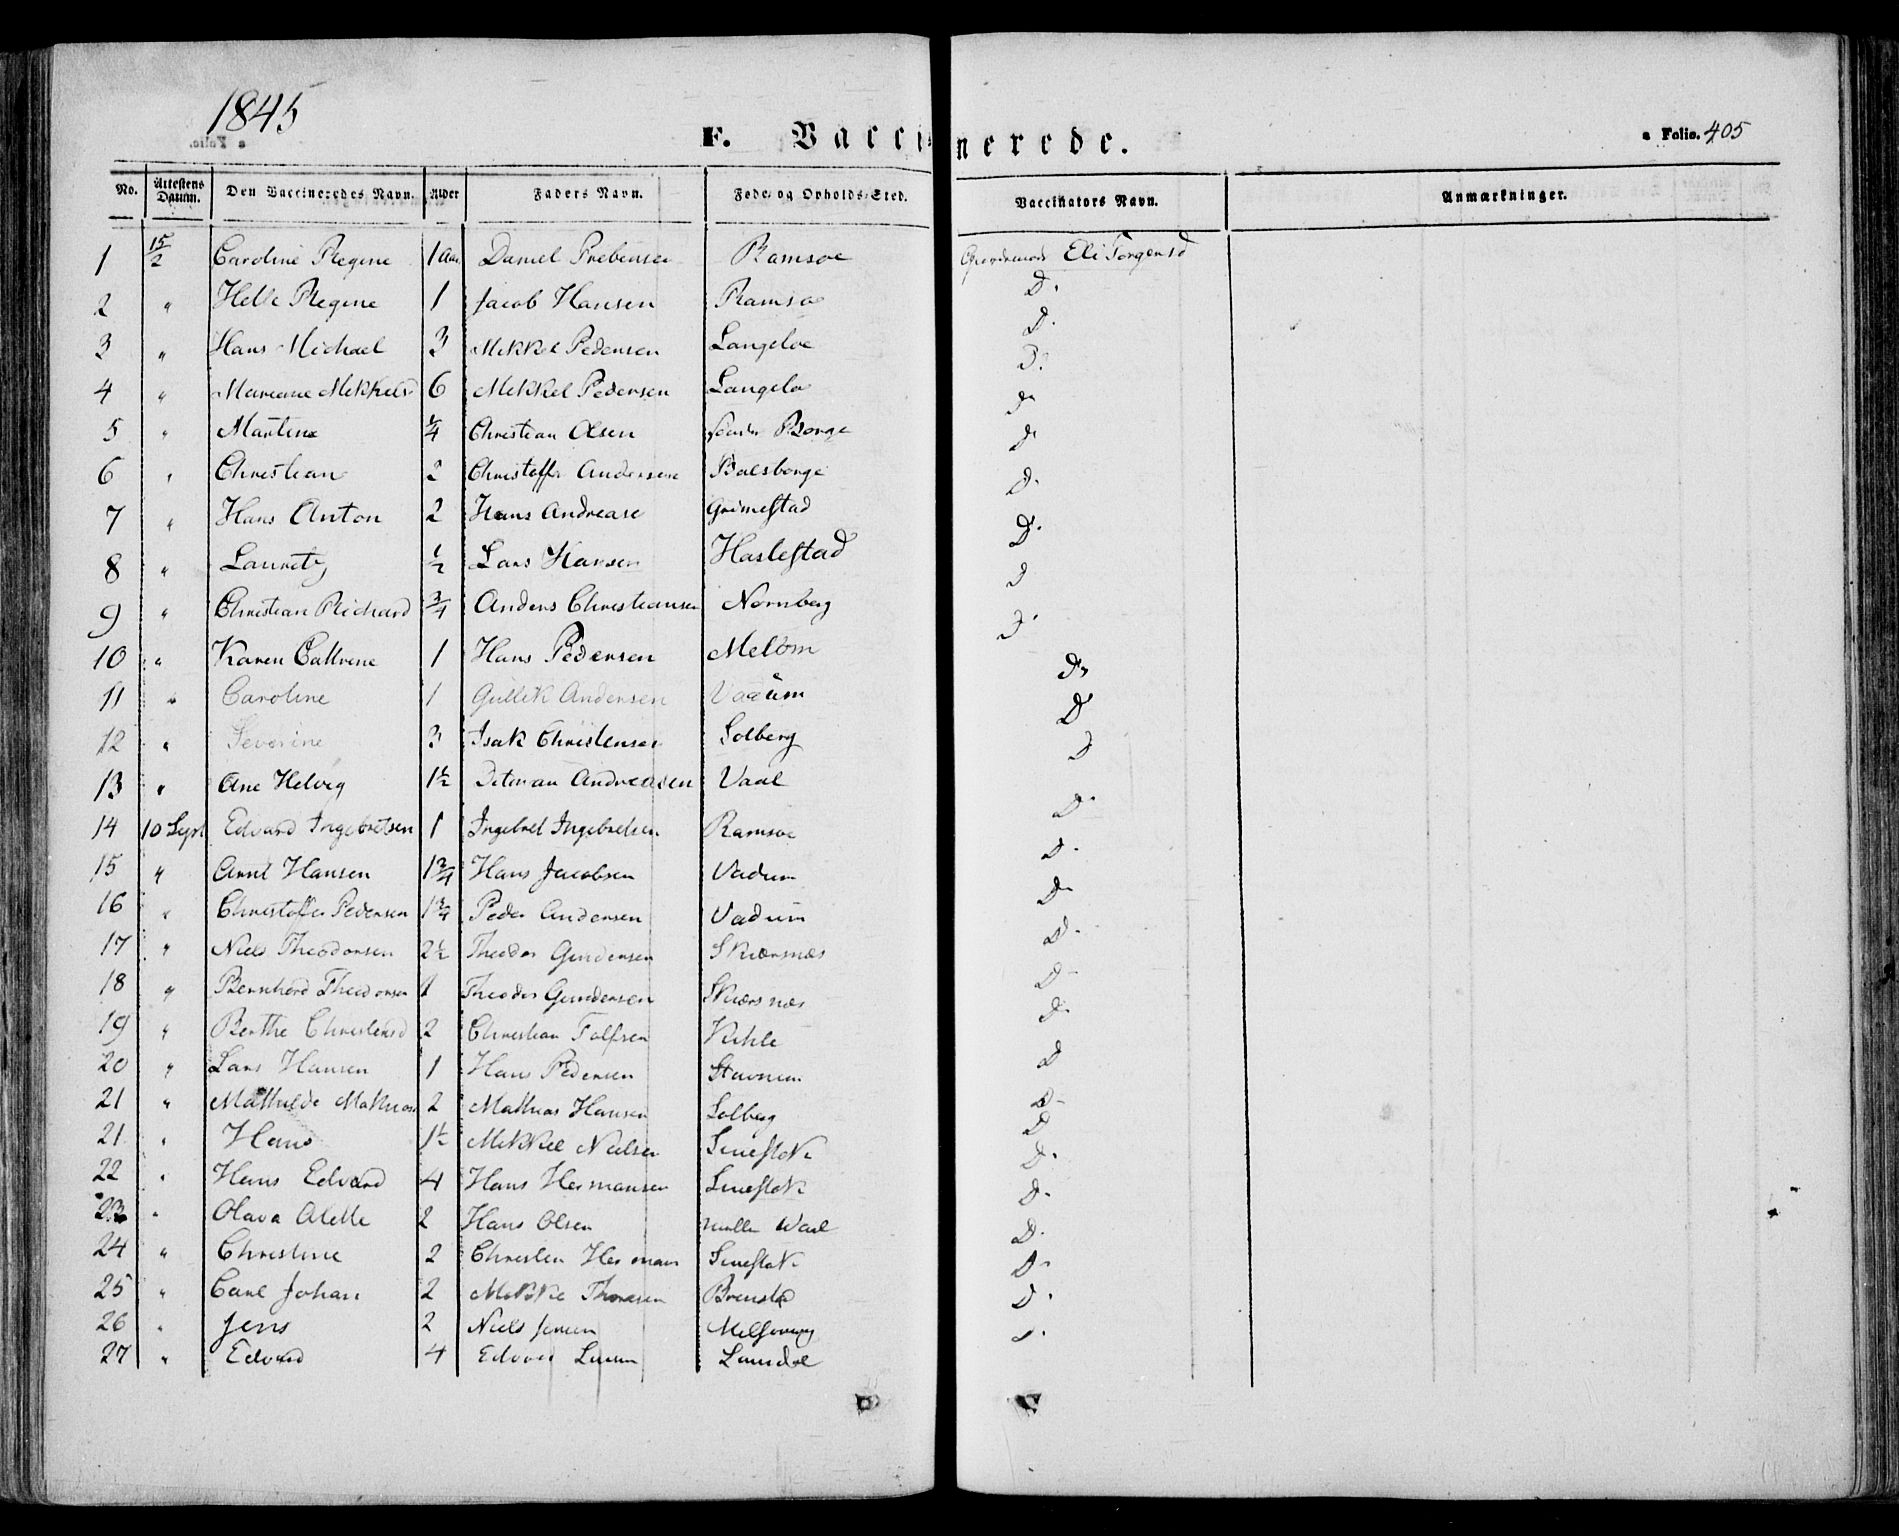 1845
F. Vaccinerede.
a Folio. 405
No. Attestens Datum. Den Vaccineredes Navn. Alder Faders Navn. Føde- og Opholds-Sted. Vaccinators Navn. Anmærkninger.
1 15/2 Caroline Regine 1 Aar Daniel Prebensen Ramsøe Eli Torgensd
2 " Helle Regine 1 Jacob Hansen Ramsø D.
3 " Hans Michael 3 Mikkel Pedersen Langeløe D.
4 " Mareane Mikkelsd 6 Mikkel Pedersen Langelø D.
5 " Martine 1/4 Christian Olsen Borge D
6 " Christian 2 Christoffer Andersen Bolsborge D
7 " Hans Anton 2 Hans Andrease Grimestad D.
8 " Lauretz 1/2 Lars Hansen Haslestad D.
9 " Christian Richard 3/4 Anders Christiansen Nornberg D
10 " Karen Cathrine 1 Hans Pedersen Melom D.
11 " Caroline 1 Gullik Andersen Vadum D.
12 " Severine 3 Isak Christensen Solberg D
13 " Ane Helvig 1½ Ditman Andreasen Vaal D
14 10 Sept Edvard Ingebretsen 1 Ingebret Ingebretsen Ramsøe D.
15 " Arnt Hansen 1¾ Hans Jacobsen Vadum D.
16 " Christoffer Pedersen 1¾ Peder Andersen Vadum D.
17 " Niels Theodorsen 2½ Theodor Gundersen Skiærsnæs D.
18 " Bernhard Theodorsen 1 Theodor Gundersen Skiærsnæs D
19 " Berthe Christensd 2 Christian Tolfsen Kihle D.
20 " Lars Hansen 1 Hans Pedersen D
21 " Mathilde Mathias 2 Mathias Hansen Solberg D
21 " Hans 1½ Mikkel Nielsen D
22 " Hans Edvard 4 Hans Hermansen D.
23 " Olava Alette 2 Hans Olsen D.
24 " Christine 2 Christen Herman D.
25 " Carl Johan 2 Mikkel D.
26 " Jens 2 Niels Jensen D.
27 " Edvard 4 Edvard